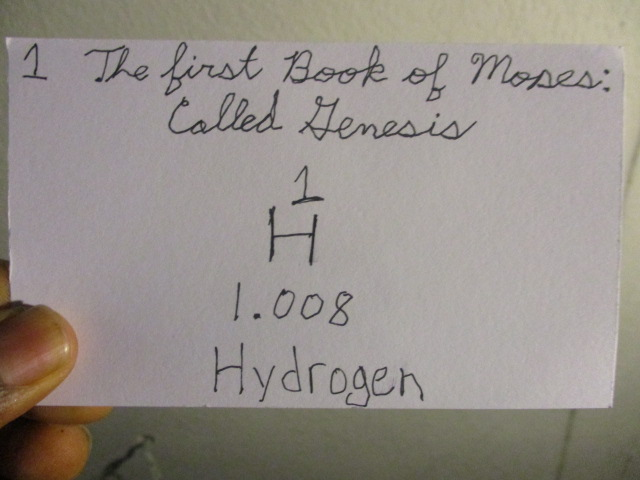 1 The first Book of Moses:
Called Genesis
1
H
1.008
Hydrogen